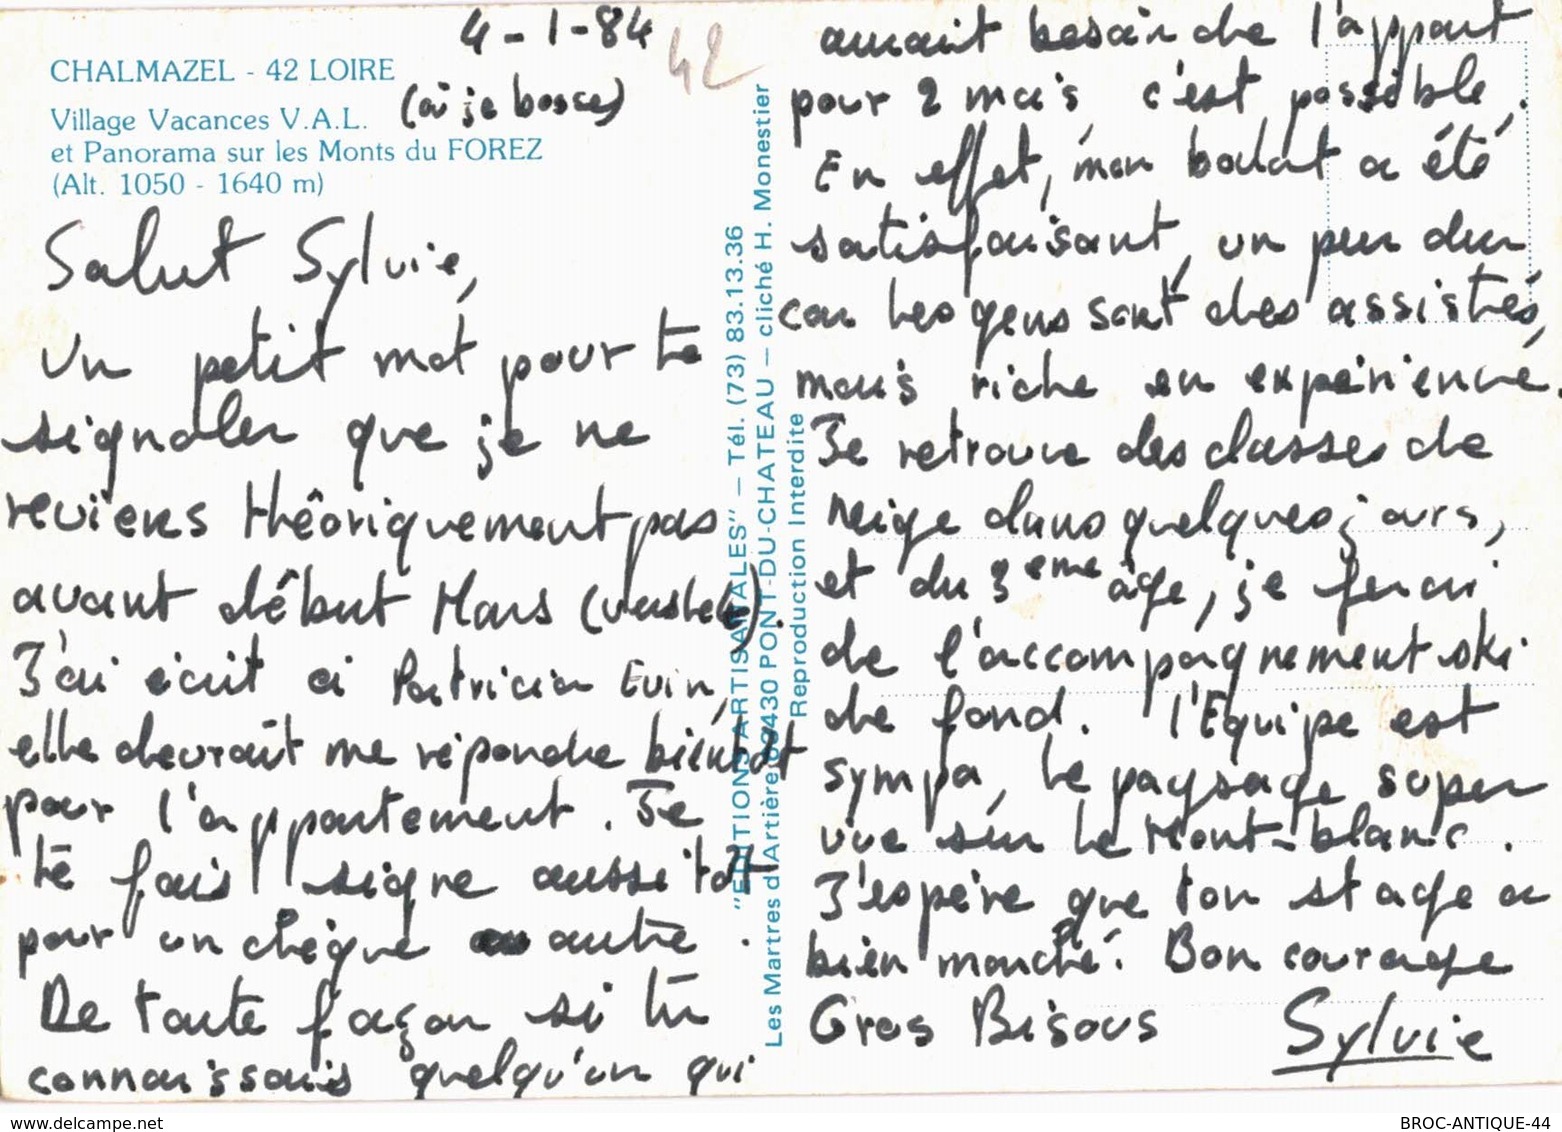 4-1-84
42
CHALMAZEL - 42 LOIRE
(où je bosse)
Village Vacances V.A.L.
et Panorama sur les Monts du FOREZ
(Alt. 1050 - 1640 m)
Salut Sylvie,
Un petit mot pour te
signaler que je ne
reviens théoriquement pas
avant début Mars (vers le 4).
J'ai écrit à Patricia Evin,
elle devrait me répondre bientôt
pour l'appartement. Je
te fais signe aussitôt
pour un chèque ou autre.
De toute façon si tu
connaissais quelqu'un qui
"EDITIONS ARTISANTALES" — Tél. (73) 83.13.36
Les Martres d'Artière 63430 PONT-DU-CHATEAU — cliché H. Monestier
Reproduction Interdite
aurait besoin de l'appart
pour 2 mois, c'est possible.
En effet, mon boulot a été
satisfaisant, un peu dur
car les gens sont des assistés,
mais riche en expérience.
Je retrouve des classes de
neige dans quelques jours,
et du 3eme âge, je ferai
de l'accompagnement ski
de fond. l'Equipe est
sympa, le paysage super
vue sur le Mont-blanc.
J'espère que ton stage a
bien marché. Bon courage
Gros Bisous
Sylvie
www.delcampe.net
BROC-ANTIQUE-44